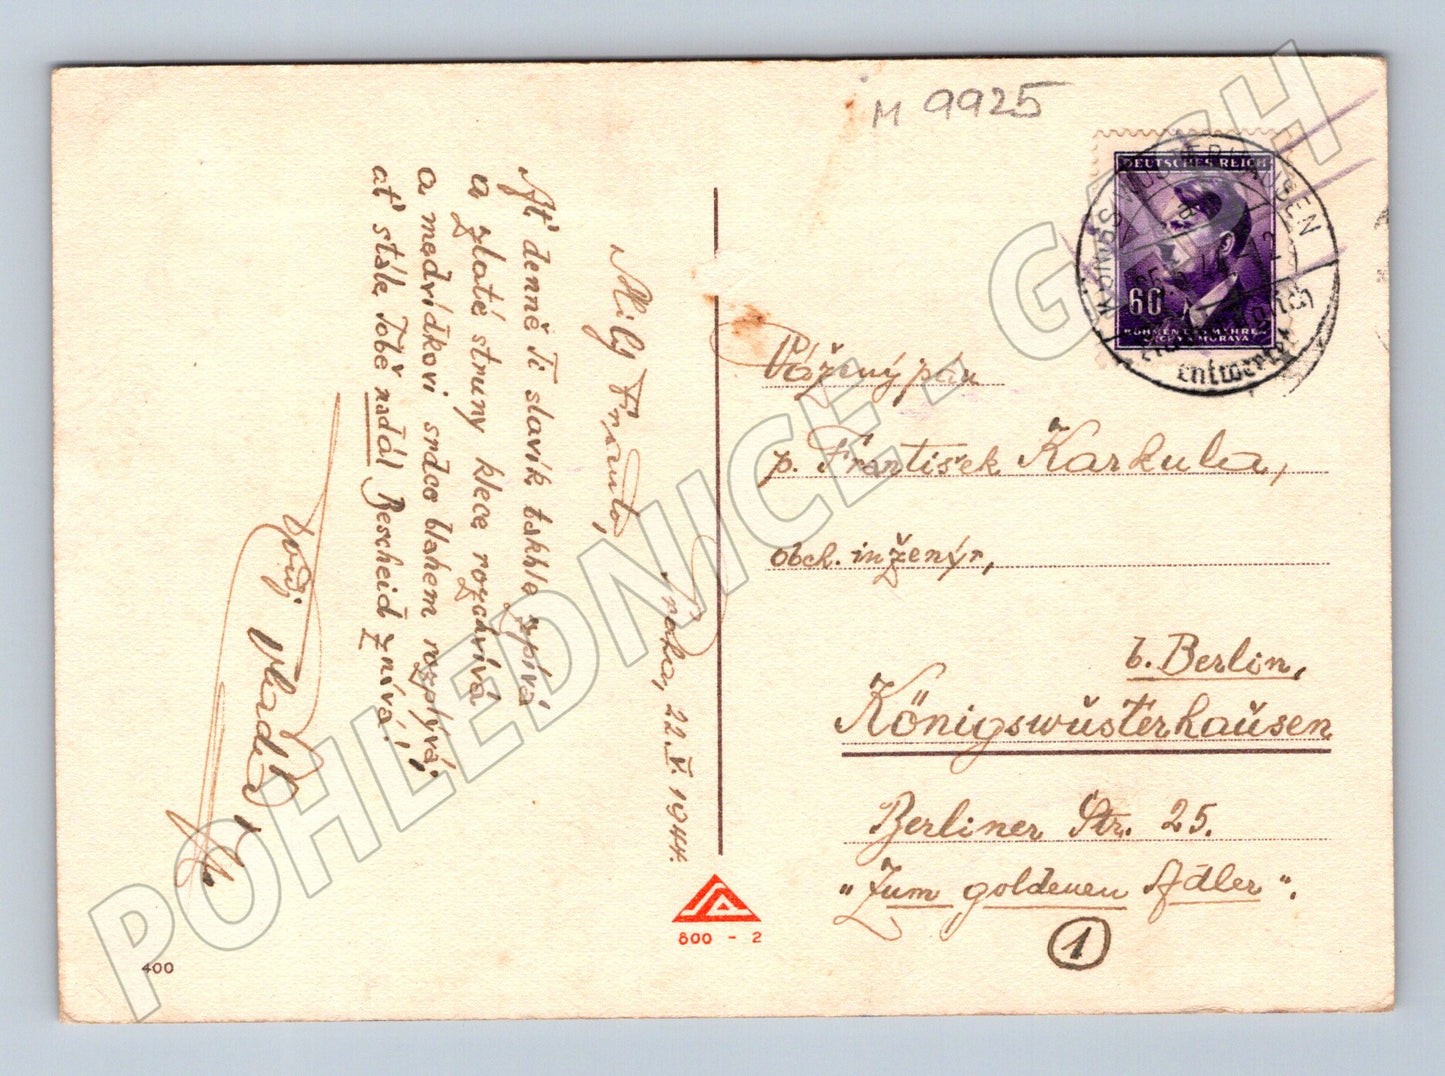 M 9925
DEUTSCHES REICH
60
BÖHMEN UND MÄHREN
ČECHY A MORAVA
KÖNIGS WUSTERHAUSEN
Praha, 22.V.1944.
Milý Franto,
Ať denně Ti slavík takhle zpívá
a zlaté struny klece rozchvívá
a medvídkovi srdce blahem rozplývá,
ať stále Tobě nadál Bescheid znívá!"
Tvůj Vlad.
Vážený pán
p. František Karkula,
obch. inženýr,
b. Berlin,
Königswüsterhausen
Berliner Str. 25.
"Zum goldenen Adler".
1
800 - 2
400
POHLEDNICE - GASH